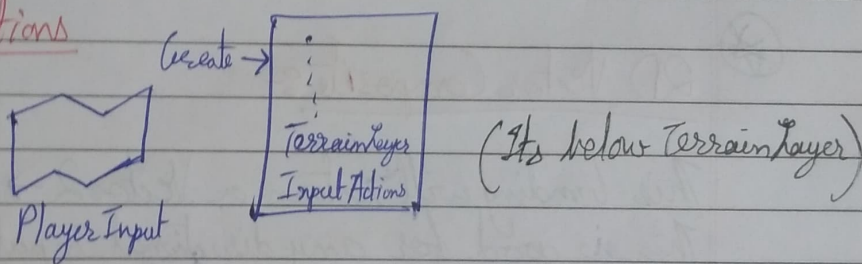 tions
Create →
Terrain Layer
Input Actions
(Its below Terrain Layer)
Player Input